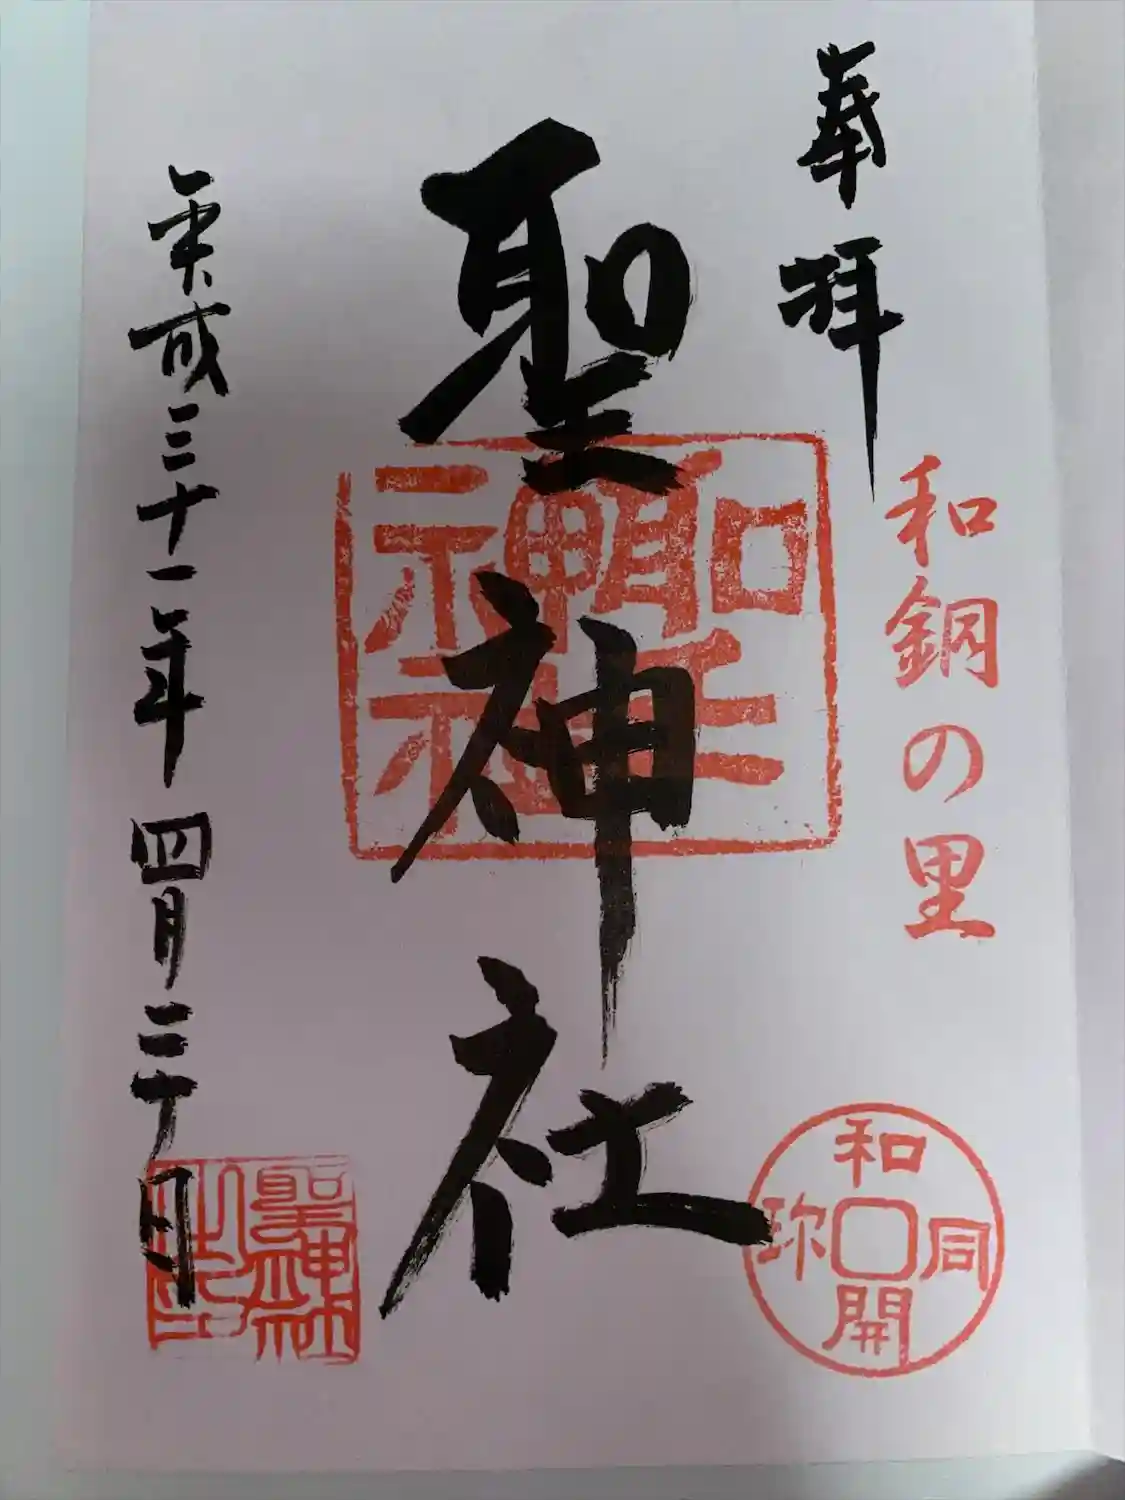 奉拝
和銅の里
和同開珎
聖神社
聖神社
平成三十一年四月二十日
聖神社